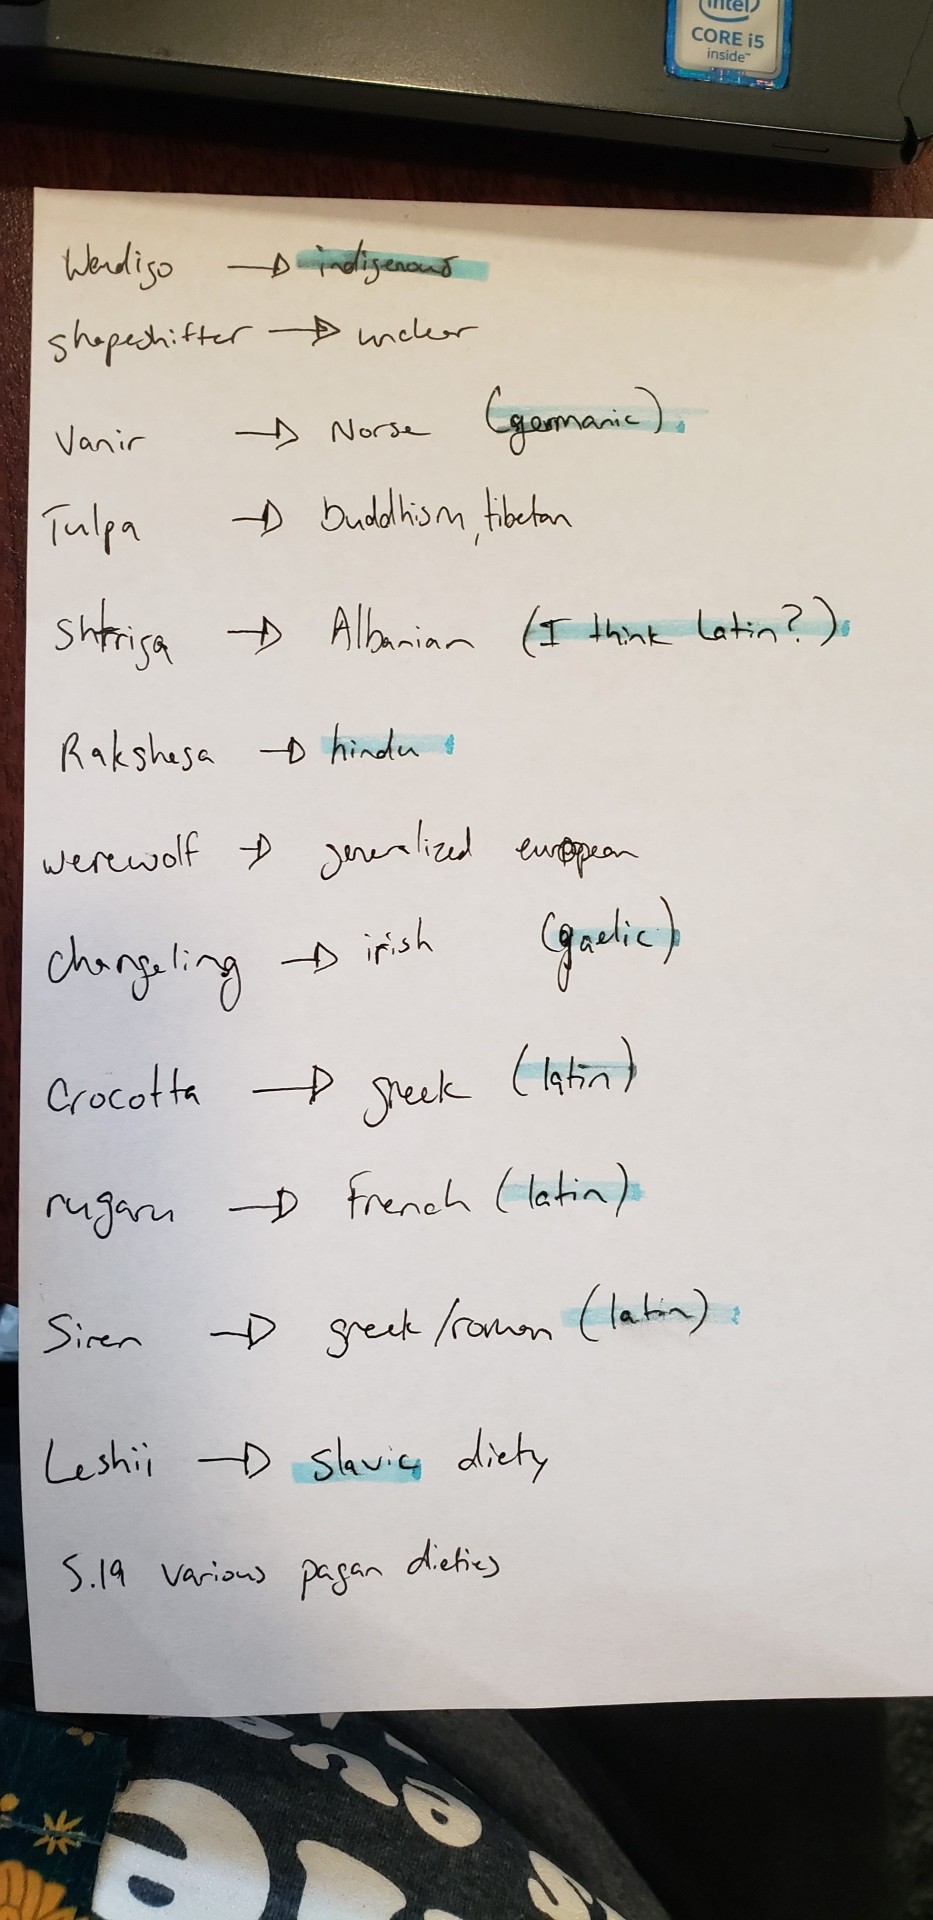 intel
CORE i5
inside™
Wendigo → indigenous
shapeshifter → unclear
Vanir → Norse (germanic)
Tulpa → buddhism, tibetan
Shtriga → Albanian (I think Latin?)
Rakshesa → hindu
werewolf → generalized european
changeling → irish (gaelic)
Crocotta → greek (latin)
rugaru → French (latin)
Siren → greek/roman (latin)
Leshii → slavic diety
5.19 various pagan dieties